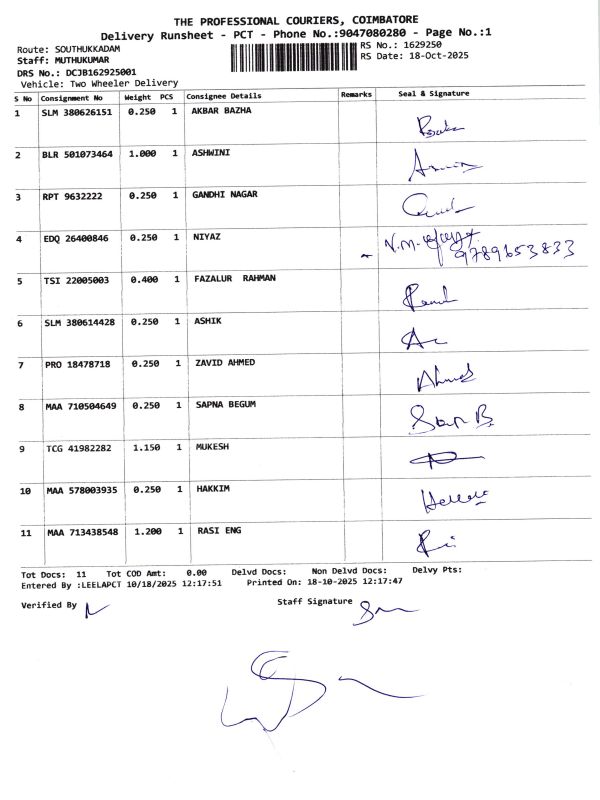 THE PROFESSIONAL COURIERS, COIMBATORE
Delivery Runsheet - PCT - Phone No.:9047080280 - Page No.:1
Route: SOUTHUKKADAM RS No.: 1629250
Staff: MUTHUKUMAR RS Date: 18-Oct-2025
DRS No.: DCJB162925001
Vehicle: Two Wheeler Delivery
S No Consignment No Weight PCS Consignee Details Remarks Seal & Signature
1 SLM 380626151 0.250 1 AKBAR BAZHA
2 BLR 501073464 1.000 1 ASHWINI
3 RPT 9632222 0.250 1 GANDHI NAGAR
4 EDQ 26400846 0.250 1 NIYAZ N.M.
9789653833
5 TSI 22005003 0.400 1 FAZALUR RAHMAN
6 SLM 380614428 0.250 1 ASHIK
7 PRO 18478718 0.250 1 ZAVID AHMED Ahmed
8 MAA 710504649 0.250 1 SAPNA BEGUM
9 TCG 41982282 1.150 1 MUKESH
10 MAA 578003935 0.250 1 HAKKIM
11 MAA 713438548 1.200 1 RASI ENG
Tot Docs: 11 Tot COD Amt: 0.00 Delvd Docs: Non Delvd Docs: Delvy Pts:
Entered By :LEELAPCT 10/18/2025 12:17:51 Printed On: 18-10-2025 12:17:47
Verified By Staff Signature